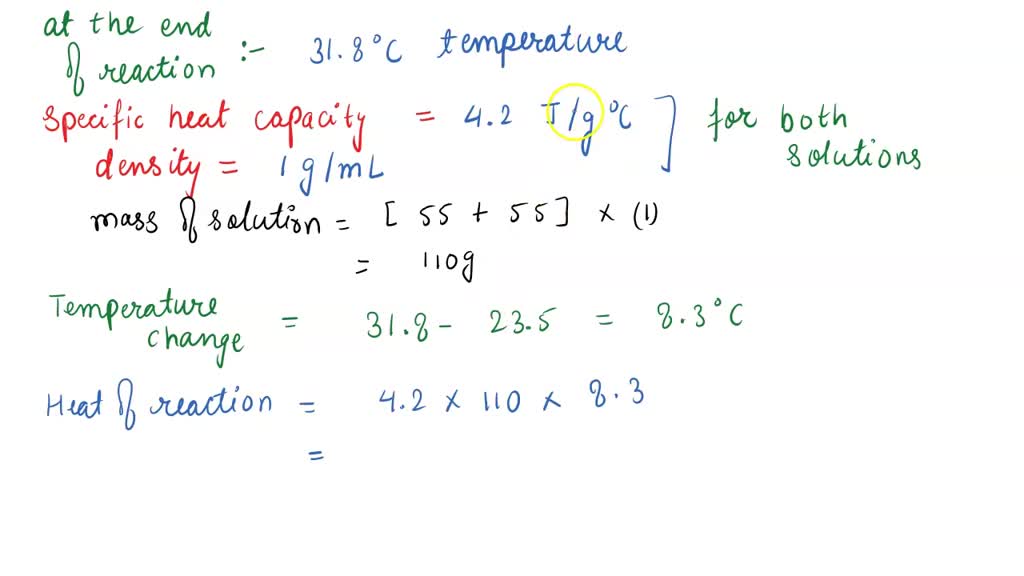 at the end
of reaction :- 31.8°C temperature
Specific heat capacity = 4.2 J/g °C ] for both solutions
density = 1 g/mL
mass of solution = [ 55 + 55 ] × (1)
= 110g
Temperature change = 31.8 - 23.5 = 8.3°C
Heat of reaction = 4.2 × 110 × 8.3
=